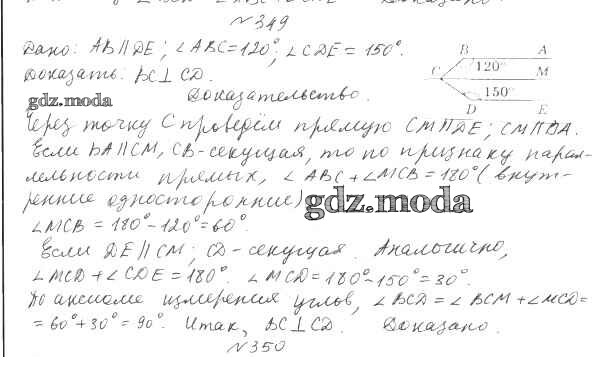 №349
Дано: AB∥DE; ∠ABC=120°; ∠CDE=150°.
Доказать: BC⊥CD.
Доказательство.
B A
120°
C M
150°
D E
gdz.moda
Через точку С проведём прямую CM∥DE; CM∥BA.
Если BA∥CM, CB-секущая, то по признаку парал-
лельности прямых, ∠ABC+∠MCB=180° (внут-
ренние односторонние)
gdz.moda
∠MCB=180°-120°=60°.
Если DE∥CM; CD-секущая. Аналогично,
∠MCD+∠CDE=180°. ∠MCD=180°-150°=30°.
По аксиоме измерения углов, ∠BCD=∠BCM+∠MCD=
=60°+30°=90°. Итак, BC⊥CD. Доказано.
№350